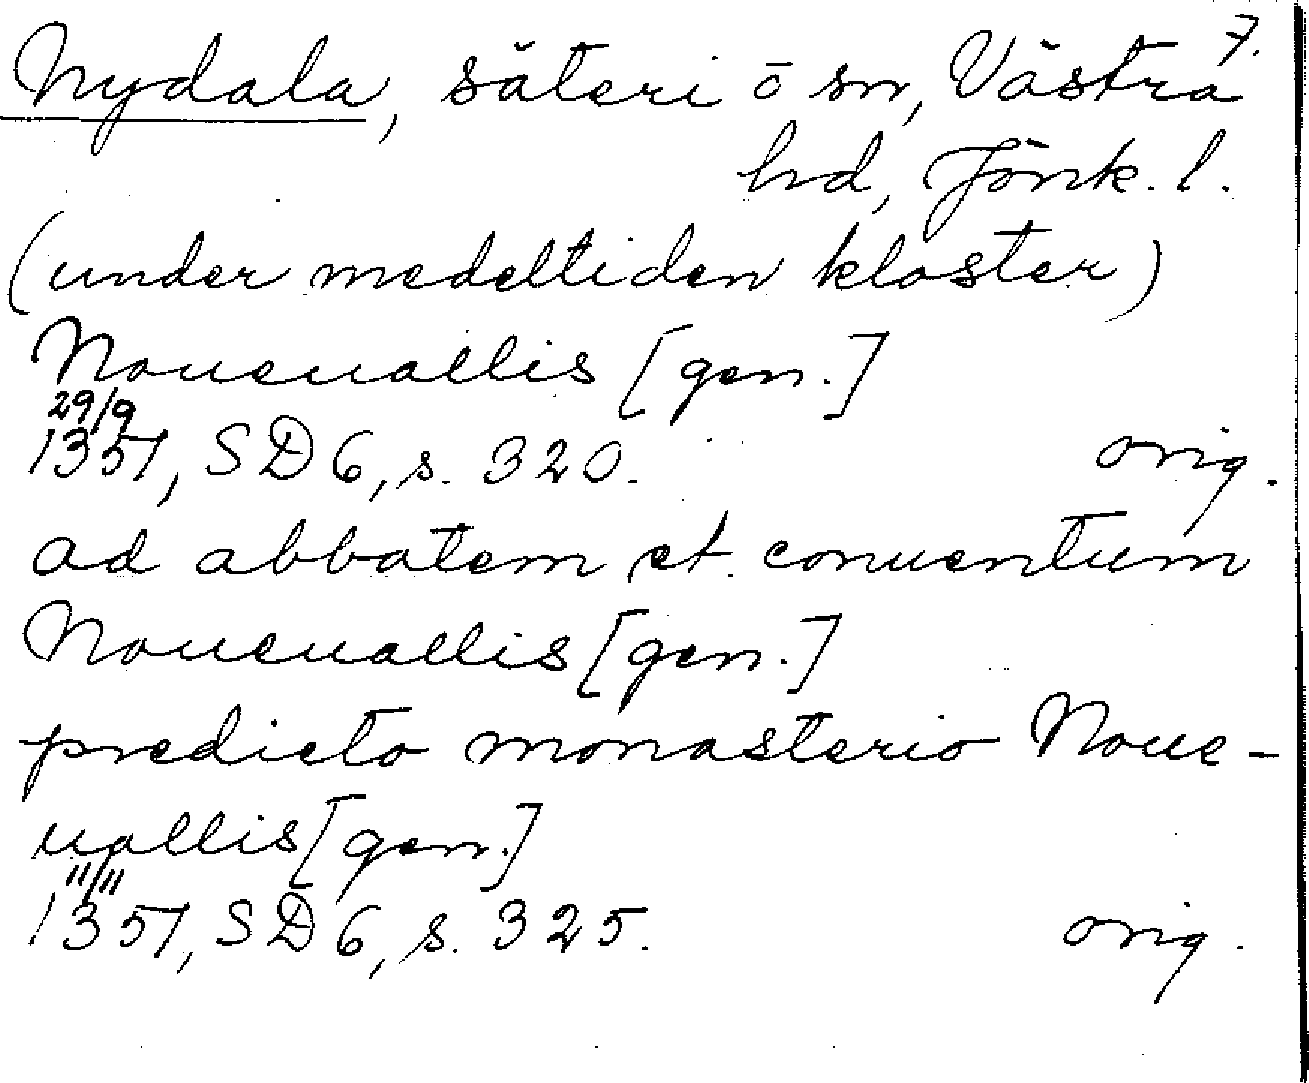 7.
Nydala, säteri o sn, Västra
hd, Jönk. l.
(under medeltiden kloster)
Noueuallis [gen.]
29/9
1351, SD 6, s. 320. orig.
ad abbatem et conuentum
Noueuallis [gen.]
predicto monasterio Noue-
uallis [gen.]
11/11
1351, SD 6, s. 325. orig.